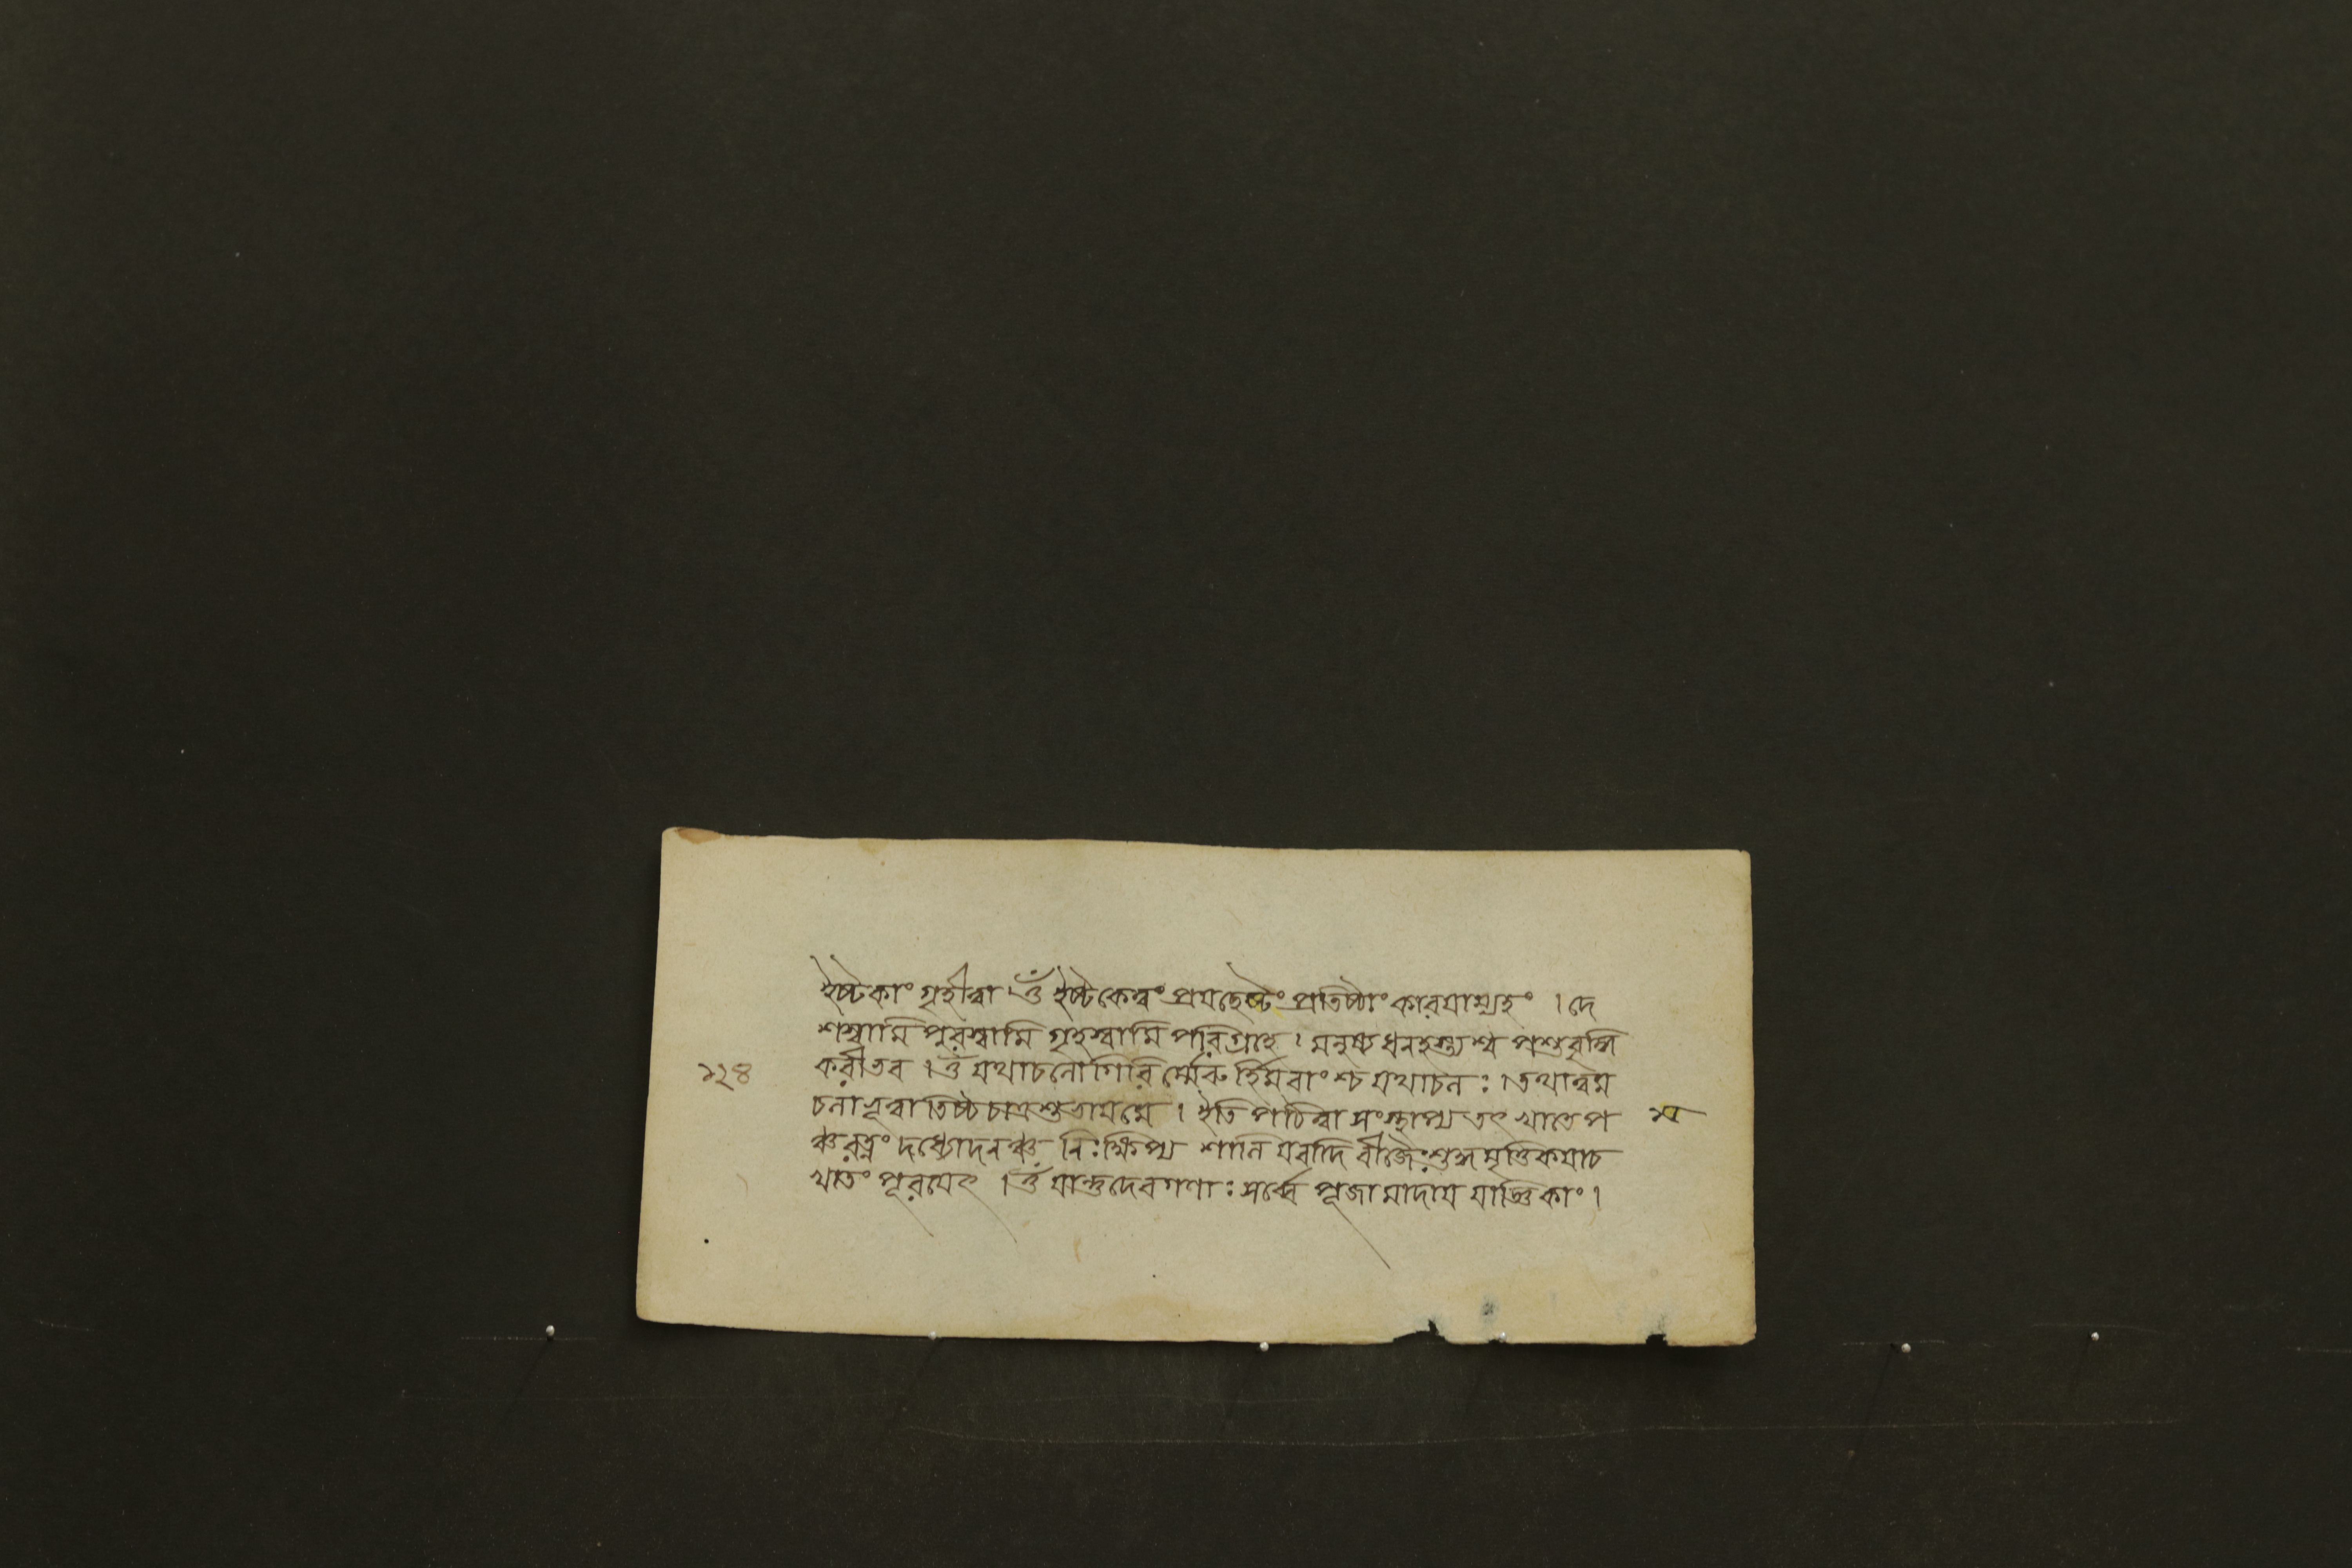 ইষ্টকাং গৃহীত্বা ।ওঁ ইষ্টকেত্বং প্রযচ্ছেষ্টং প্রতিষ্ঠাং কারয়াম্যহং । দে
শস্বামি পুরস্বামি গৃহস্বামি পরিগ্রহে । মনুষ্য ধনহস্ত্যশ্ব পশুবৃদ্ধি
১২৪ করীভব ।ওঁ যথাচলো গিরির্ম্মেরু র্হিমবাংশ্চ যথাচলঃ ।তথাত্বম
চলাভূত্বা তিষ্ঠ চাত্র শুভায় মে । ইতি পঠিত্বা সংস্থাপ্য তৎ খাতে প
ঞ্চরত্নং দধ্যোদনঞ্চ নিঃক্ষিপ্য শালি যবাদি বীজৈঃ শুদ্ধমৃত্তিকয়াচ
খাতং পূরয়েৎ ।ওঁ যান্তুদেবগণাঃ সর্ব্বে পূজামাদায় যাজ্ঞিকাং ।